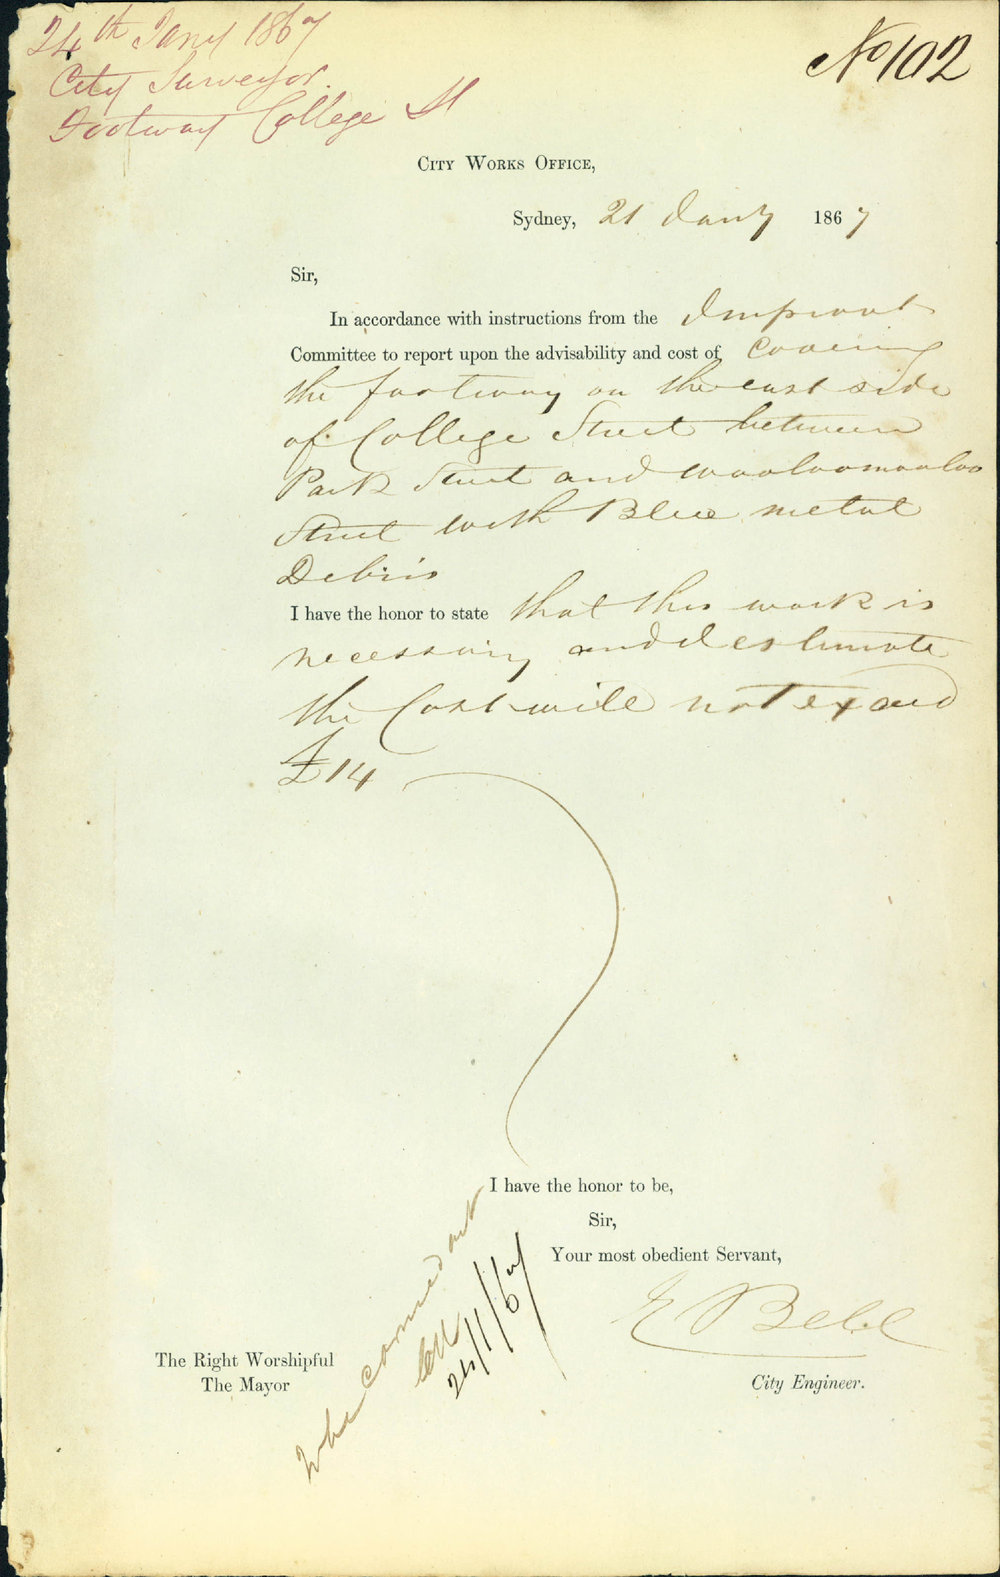 24th Jany 1867
City Surveyor.
Footway College St
No 102
City Works Office,
Sydney, 21 Jany 1867
Sir,
In accordance with instructions from the Improvt
Committee to report upon the advisability and cost of Covering
the footway on the east side
of College Street between
Park Street and Woolloomooloo
Street with Blue metal
Debris
I have the honor to state that this work is
necessary and I estimate
the Cost will not exceed
£14
I have the honor to be,
Sir,
Your most obedient Servant,
E Bell
City Engineer.
The Right Worshipful
The Mayor
To be carried out
24/1/67